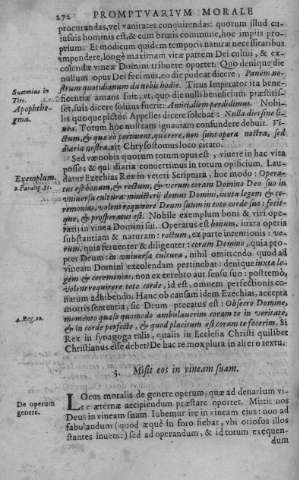 272 PROMPTVARIVM MORALE
procurandas, vel vanitates conquirendas: quorum illud cuiuis
hominis est, & cum brutis commune, hoc impiis proprium.
Et modicum quidem tempora naturæ necessitatibus
impendere, longè maximam vitæ partem Dei cultui, &
colendæ vineæ Domini tribuere oportet. Quo denique die
nullum opus Dei fecimus, eo die pudeat dicere, Panem nostrum
quotidianum da nobis hodie. Titus Imperator ita
amans fuit, vt, quo die nulli beneficium
suis dicere solitus fuerit: Amici diem perdidimus.
quoque pictor Appelles dicere solebat: Nulla dies sine linea.
Totum hoc nostram ignauiam confundere debuit.
& quæ eò pertinent, non sunt opera nostra, sed
Chrysostomus loco citato.
Suetonius in
Tito.
Apophthegma.
Sed væ nobis quotum totum opus est, vinere in hac vita
posse; & qui diaria conterimus in totum opificium. Laudatur
Ezechias Rex in veteri Scriptura, hoc modo: Operatus
est bonum, & rectum, & verum coram Domino Deo suo in
vniuersa cultura ministerij domus Domini, iuxta legem & ceremonias,
volens requirere Deum suum in toto corde suo: fecitque,
& prosperatus est. Nobile exemplum boni & viri operarii
in vinea Domini sui. Operatus est bonum, iuxta operis
substantiam & naturam: rectum, ex parte intentionis:
quia feruenter & diligenter: coram Domino, quia propter
Deum: in vniuersa cultura, nihil omittendo quod ad
vineam Domini excolendam pertinebat: denique iuxta legem
& ceremonias, non ex cerebro aut sensu suo: postremò,
volens requirere toto corde, id est, omnem perfectionis
Hanc ob causam idem Ezechias, accepta
mortis sententia, sic Deum precatus est: Obsecro Domine,
memento quæso quomodo ambulauerim coram te in veritate,
& in corde perfecto, & quod placitum est coram te fecerim. Si
Rex in synagoga talis, qualis in Ecclesia Christi quilibet
Christianus esse debet? De hac re mox plura in altero textu.
Exemplum.
2.Paralip.31.
4.Reg.20.
3. Misit eos in vineam suam.
De operum
genere.
LOcus moralis de genere operum, quæ ad denarium
æternæ accipiendum præstare oportet. Mittit nos
Deus in vineam suam. Iubemur ire in vineam eius: non ad
fabulandum (quod æquè in foro fiebat, vbi otiosos illos
stantes inuenit) sed ad operandum, & id totum exequendum
dum